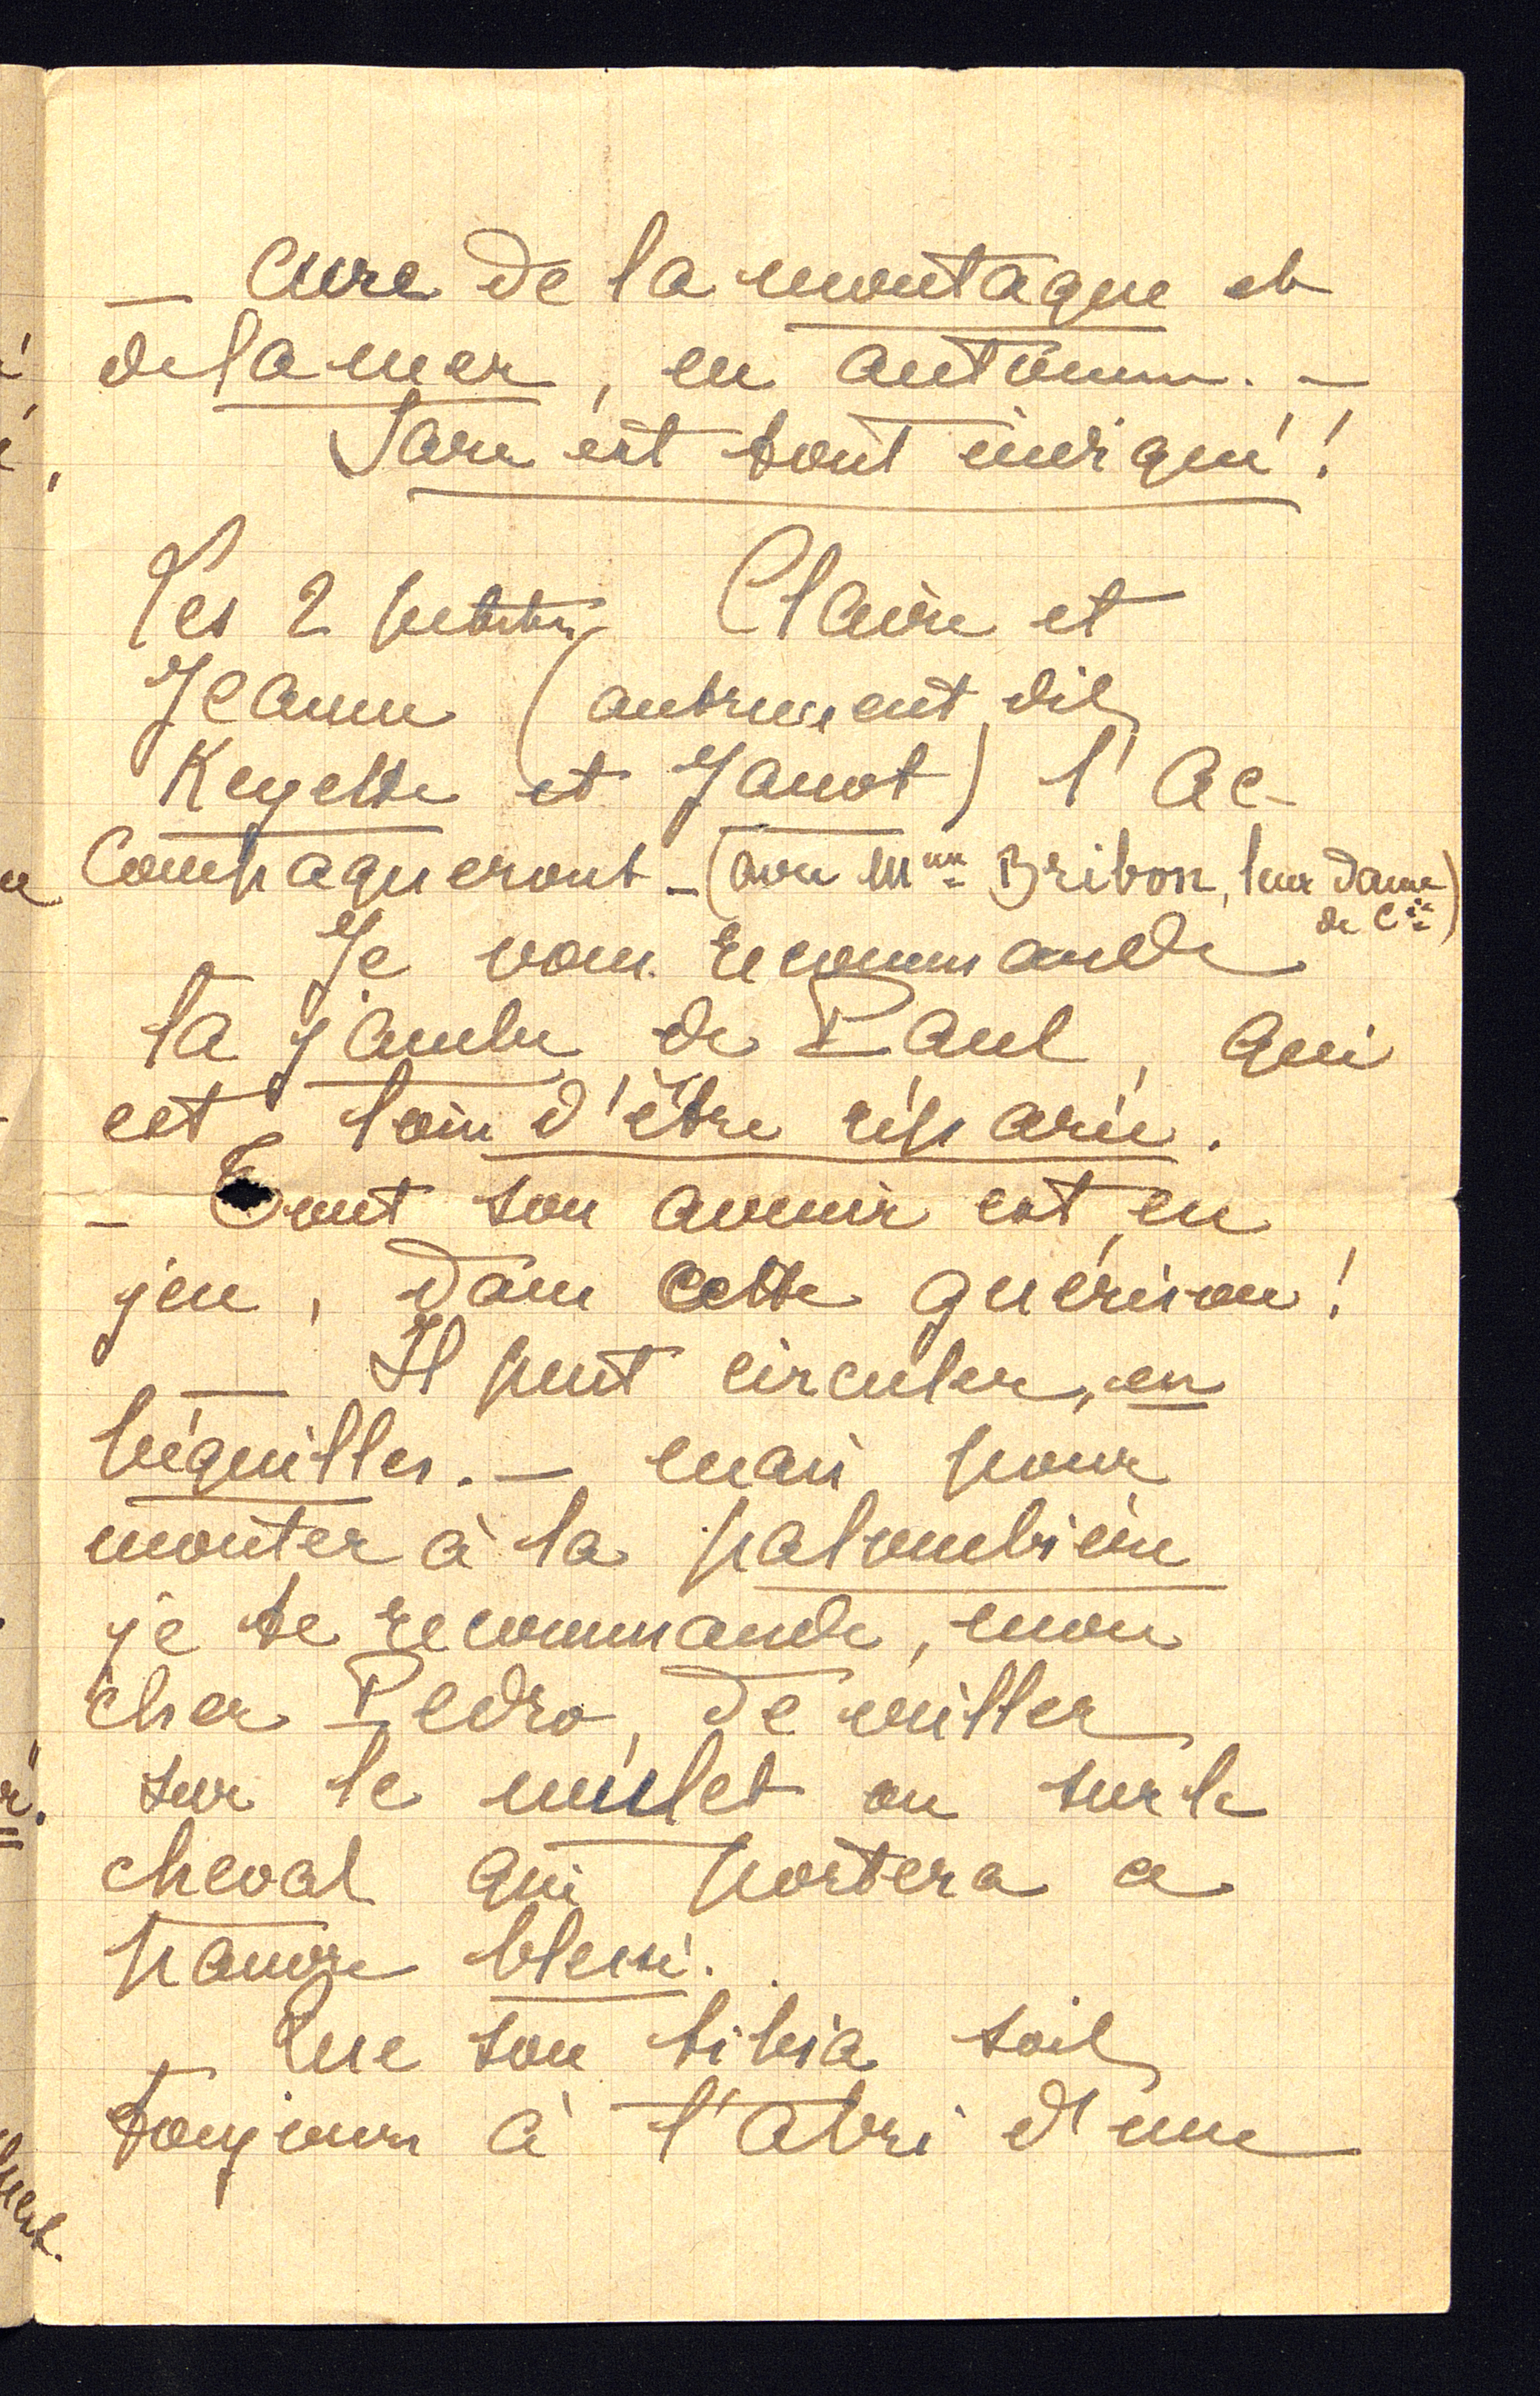 – Cure de la montagne et
de la mer, en automne. –
Sare est tout indiqué !
Les 2 petites Claire et
Jeanne (autrement dit
Keyette et Janot) l'ac-
compagneront – (avec Mme Bribon, leur dame
de Cie)
– Je vous recommande
la jambe de Paul, qui
est loin d'être réparée.
– Tout son avenir est en
jeu, dans cette guérison !
– Il peut circuler, en
béquilles. – mais pour
monter à la palombière
je te recommande, mon
cher Pedro, de veiller
sur le mulet ou sur le
cheval qui portera ce
pauvre blessé.
– Que son tibia soit
toujours à l'abri d'une